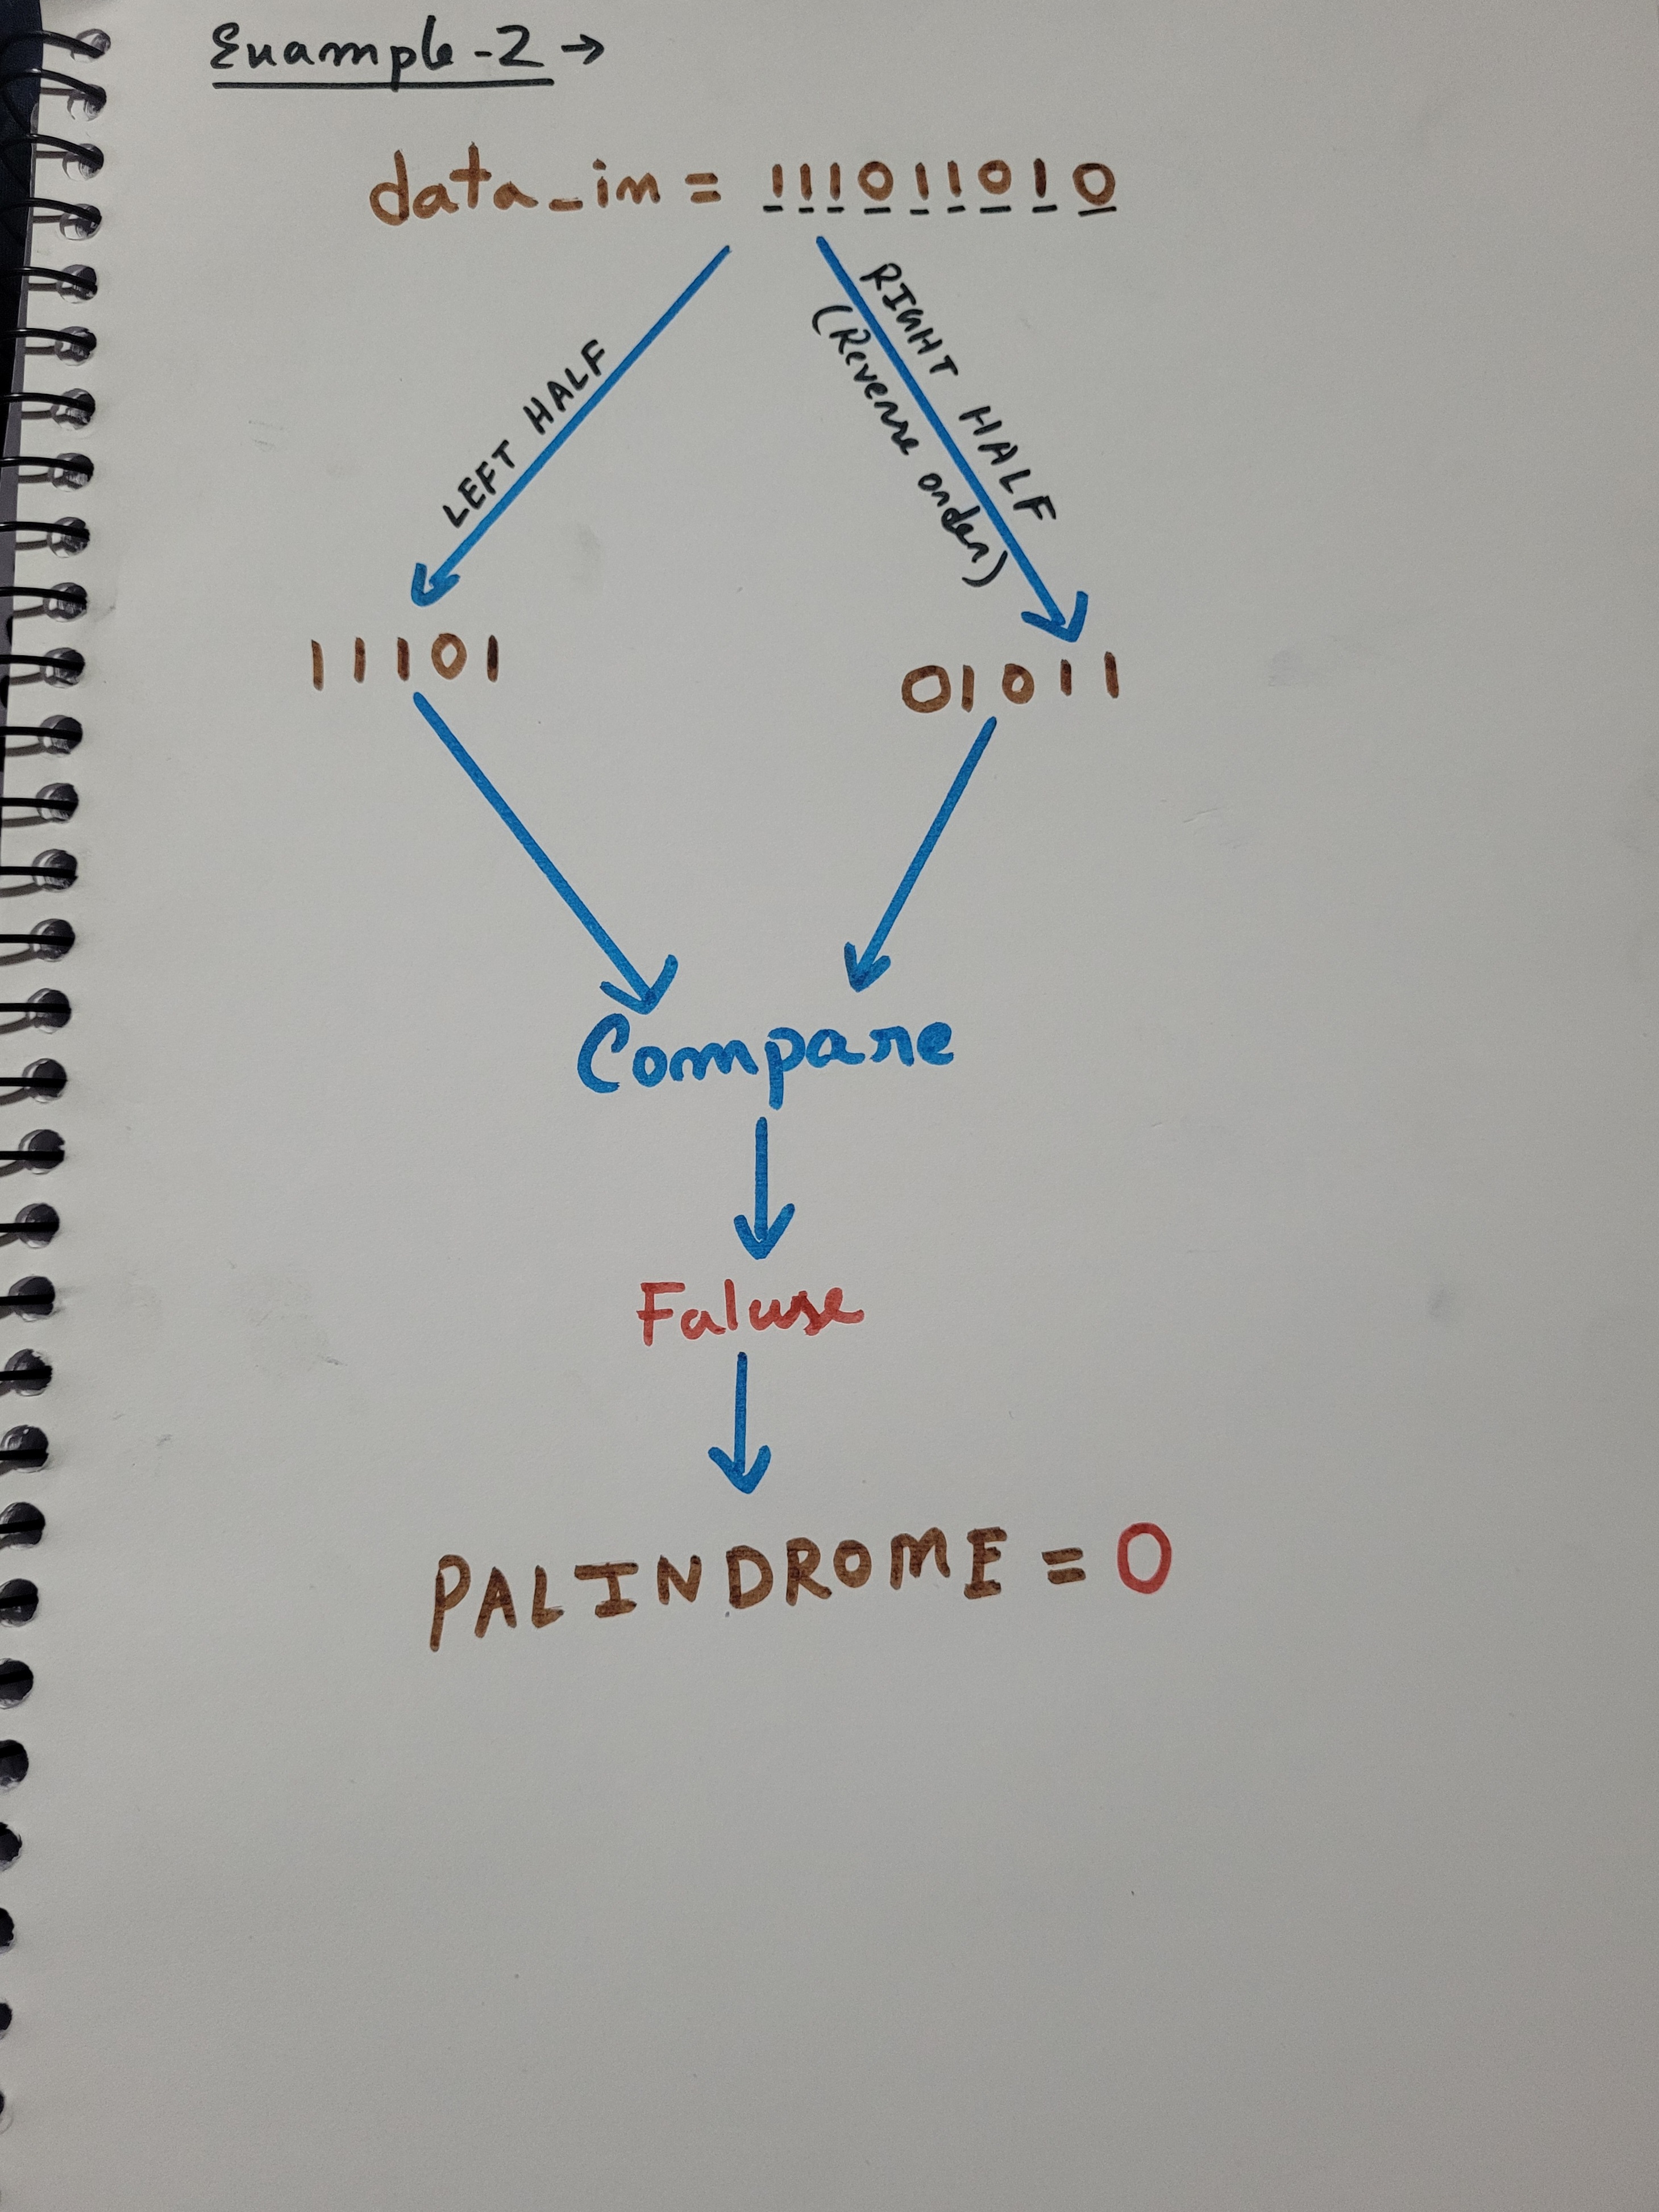 Example-2 →
data_in = 111011010
LEFT HALF
RIGHT HALF
(Reverse order)
11101
01011
Compare
Faluse
PALINDROME = 0